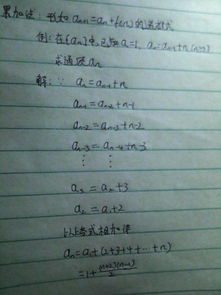 累加法：形如 aₙ₊₁ = aₙ + f(n) 的递推式
例：在{aₙ}中，已知 a₁=1, aₙ=aₙ₋₁+n (n≥2)
求通项 aₙ
解：∵ aₙ = aₙ₋₁+n
aₙ₋₁ = aₙ₋₂+n-1
aₙ₋₂ = aₙ₋₃+n-2
aₙ₋₃ = aₙ₋₄+n-3
⋮ ⋮
a₃ = a₂+3
a₂ = a₁+2
以上各式相加得
aₙ = a₁+(2+3+4+…+n)
=1+(n+2)(n-1)/2